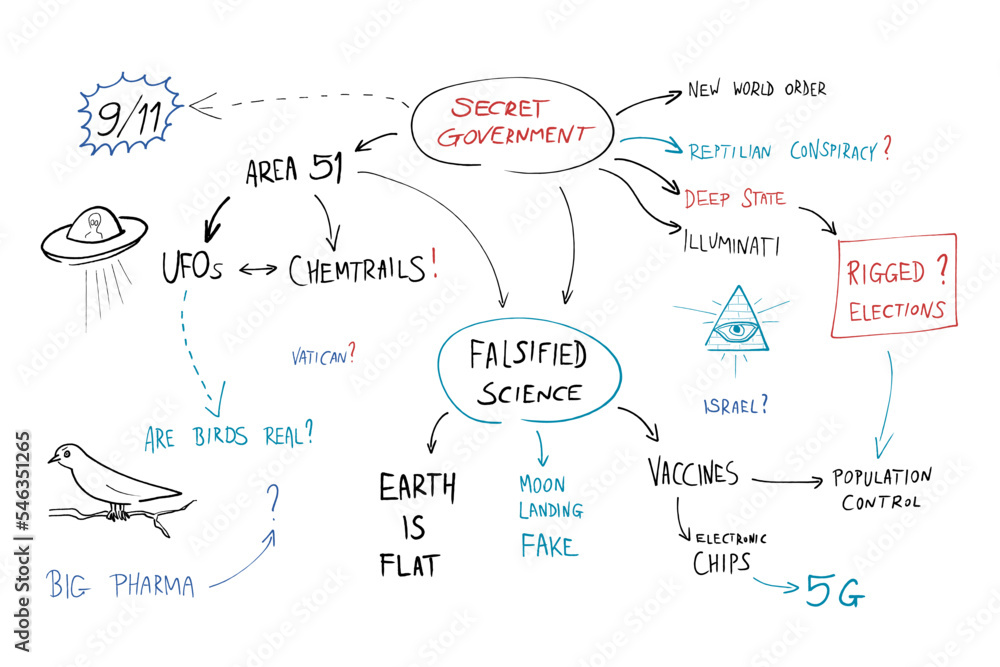 9/11
SECRET
GOVERNMENT
NEW WORLD ORDER
REPTILIAN CONSPIRACY?
DEEP STATE
ILLUMINATI
AREA 51
UFOs
CHEMTRAILS!
RIGGED ?
ELECTIONS
VATICAN?
FALSIFIED
SCIENCE
ISRAEL?
ARE BIRDS REAL?
?
BIG PHARMA
EARTH
IS
FLAT
MOON
LANDING
FAKE
VACCINES
POPULATION
CONTROL
ELECTRONIC
CHIPS
5G
Adobe Stock | #546351265
Adobe Stock